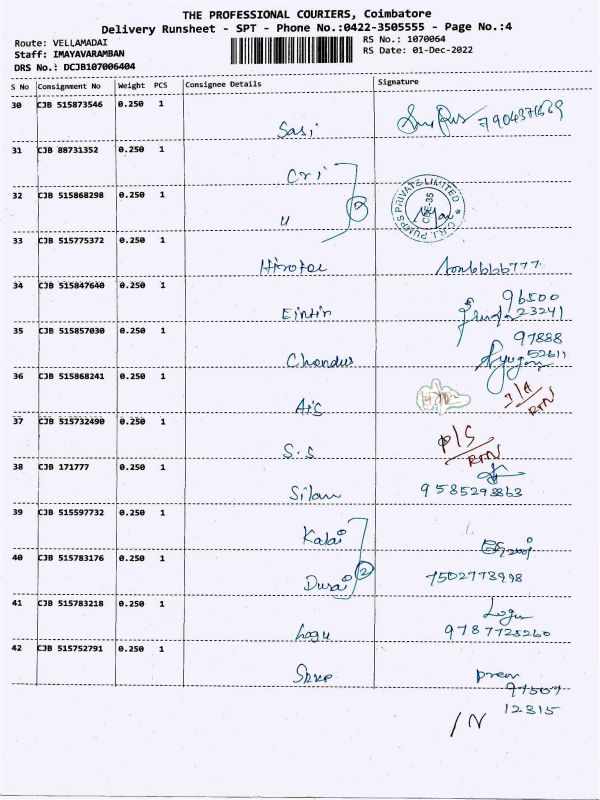 THE PROFESSIONAL COURIERS, Coimbatore
Delivery Runsheet - SPT - Phone No.:0422-3505555 - Page No.:4
Route: VELLAMADAI RS No.: 1070064
Staff: IMAYAVARAMBAN RS Date: 01-Dec-2022
DRS No.: DCJB107006404
S No Consignment No Weight PCS Consignee Details Signature
30 CJB 515873546 0.250 1
Sasi
31 CJB 88731352 0.250 1
Cri
32 CJB 515868298 0.250 1
C.R.I. PUMPS PRIVATE LIMITED
CBE-35
33 CJB 515775372 0.250 1
34 CJB 515847640 0.250 1
96500
23241
35 CJB 515857030 0.250 1
97888
52611
Chondus
36 CJB 515868241 0.250 1
RTN
37 CJB 515732490 0.250 1
P/S
RTN
S.S
38 CJB 171777 0.250 1
9585293863
39 CJB 515597732 0.250 1
Kalai
40 CJB 515783176 0.250 1
Durai 2 7502773998
41 CJB 515783218 0.250 1
Logu
Logu 9787725260
42 CJB 515752791 0.250 1
prem
97507
12315
/N